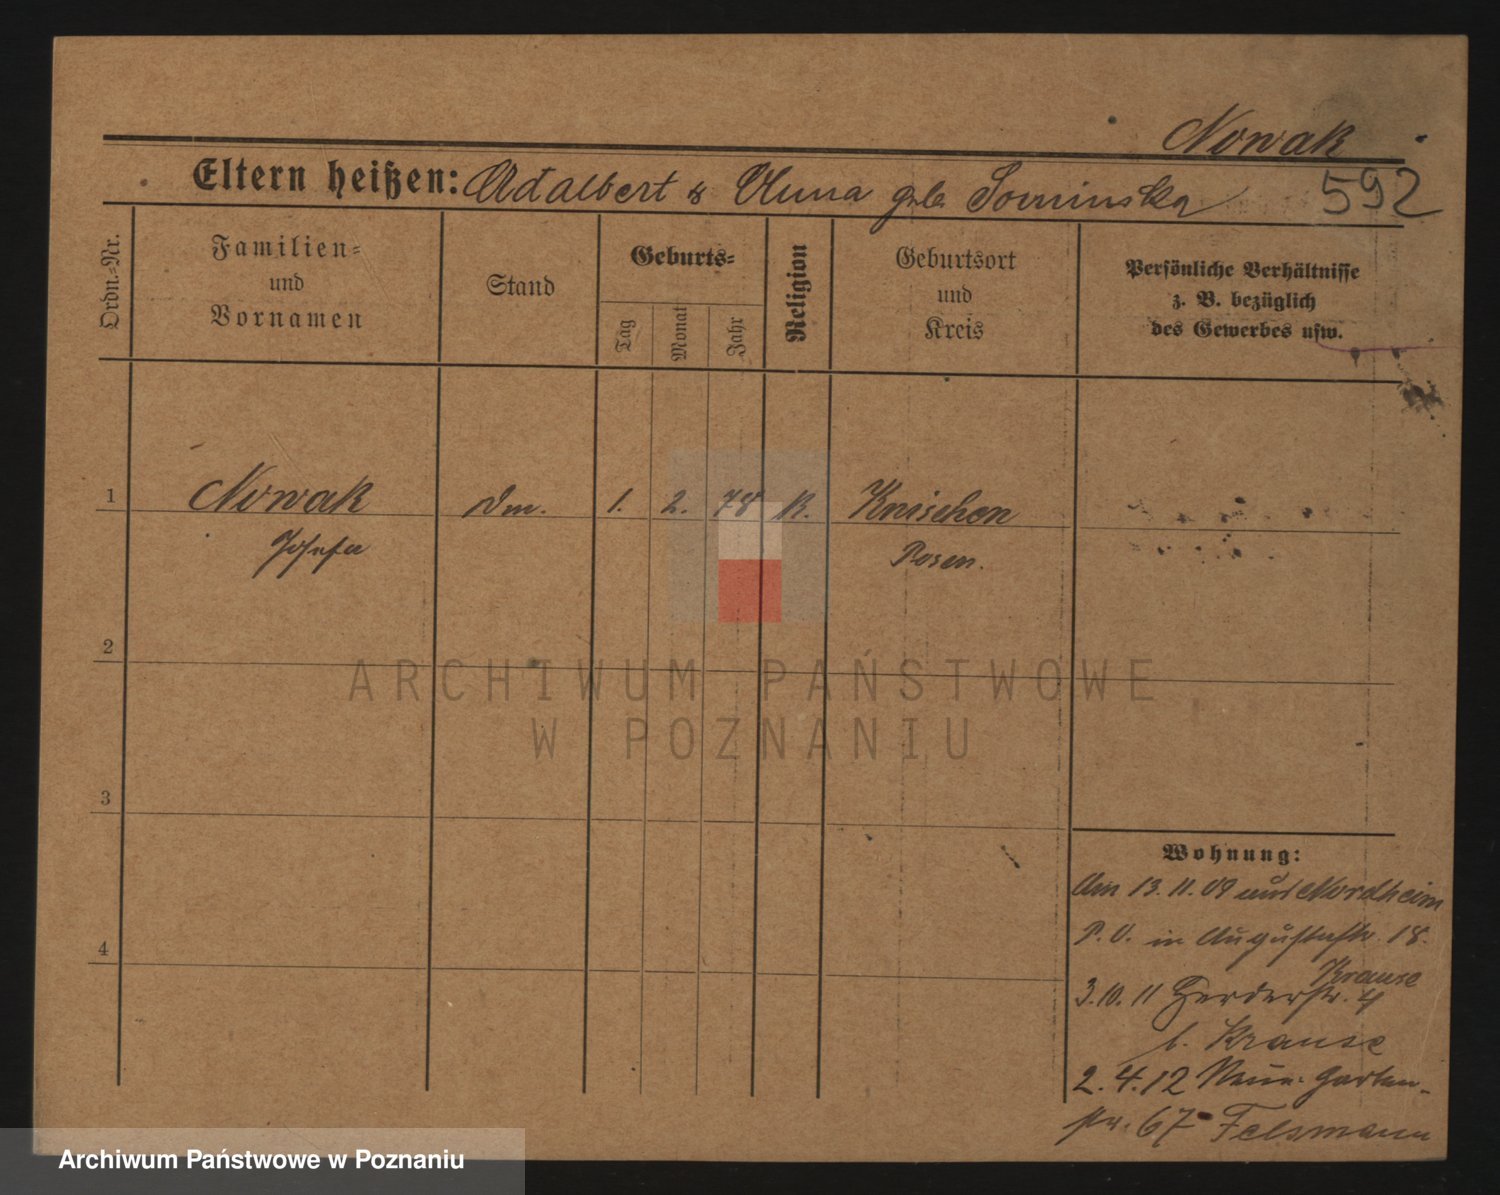 Nowak
Eltern heißen: Adalbert & Anna geb. Sominska
592
Ordn.-Nr.
Familien- und Vornamen
Stand
Geburts-
Tag
Monat
Jahr
Religion
Geburtsort und Kreis
Persönliche Verhältnisse
z. B. bezüglich
des Gewerbes usw.
1
Nowak
Dm.
1.
2.
78
K.
Knischen
Josefa
Posen.
2
ARCHIWUM PAŃSTWOWE
W POZNANIU
3
Wohnung:
Am 13. 11. 09 aus Nordheim
P. O. in Augustastr. 18.
Krause
3. 10. 11 Herderstr. 4
b. Krause
2. 4. 12 Neue Garten-
str. 67 Felsmann
4
Archiwum Państwowe w Poznaniu